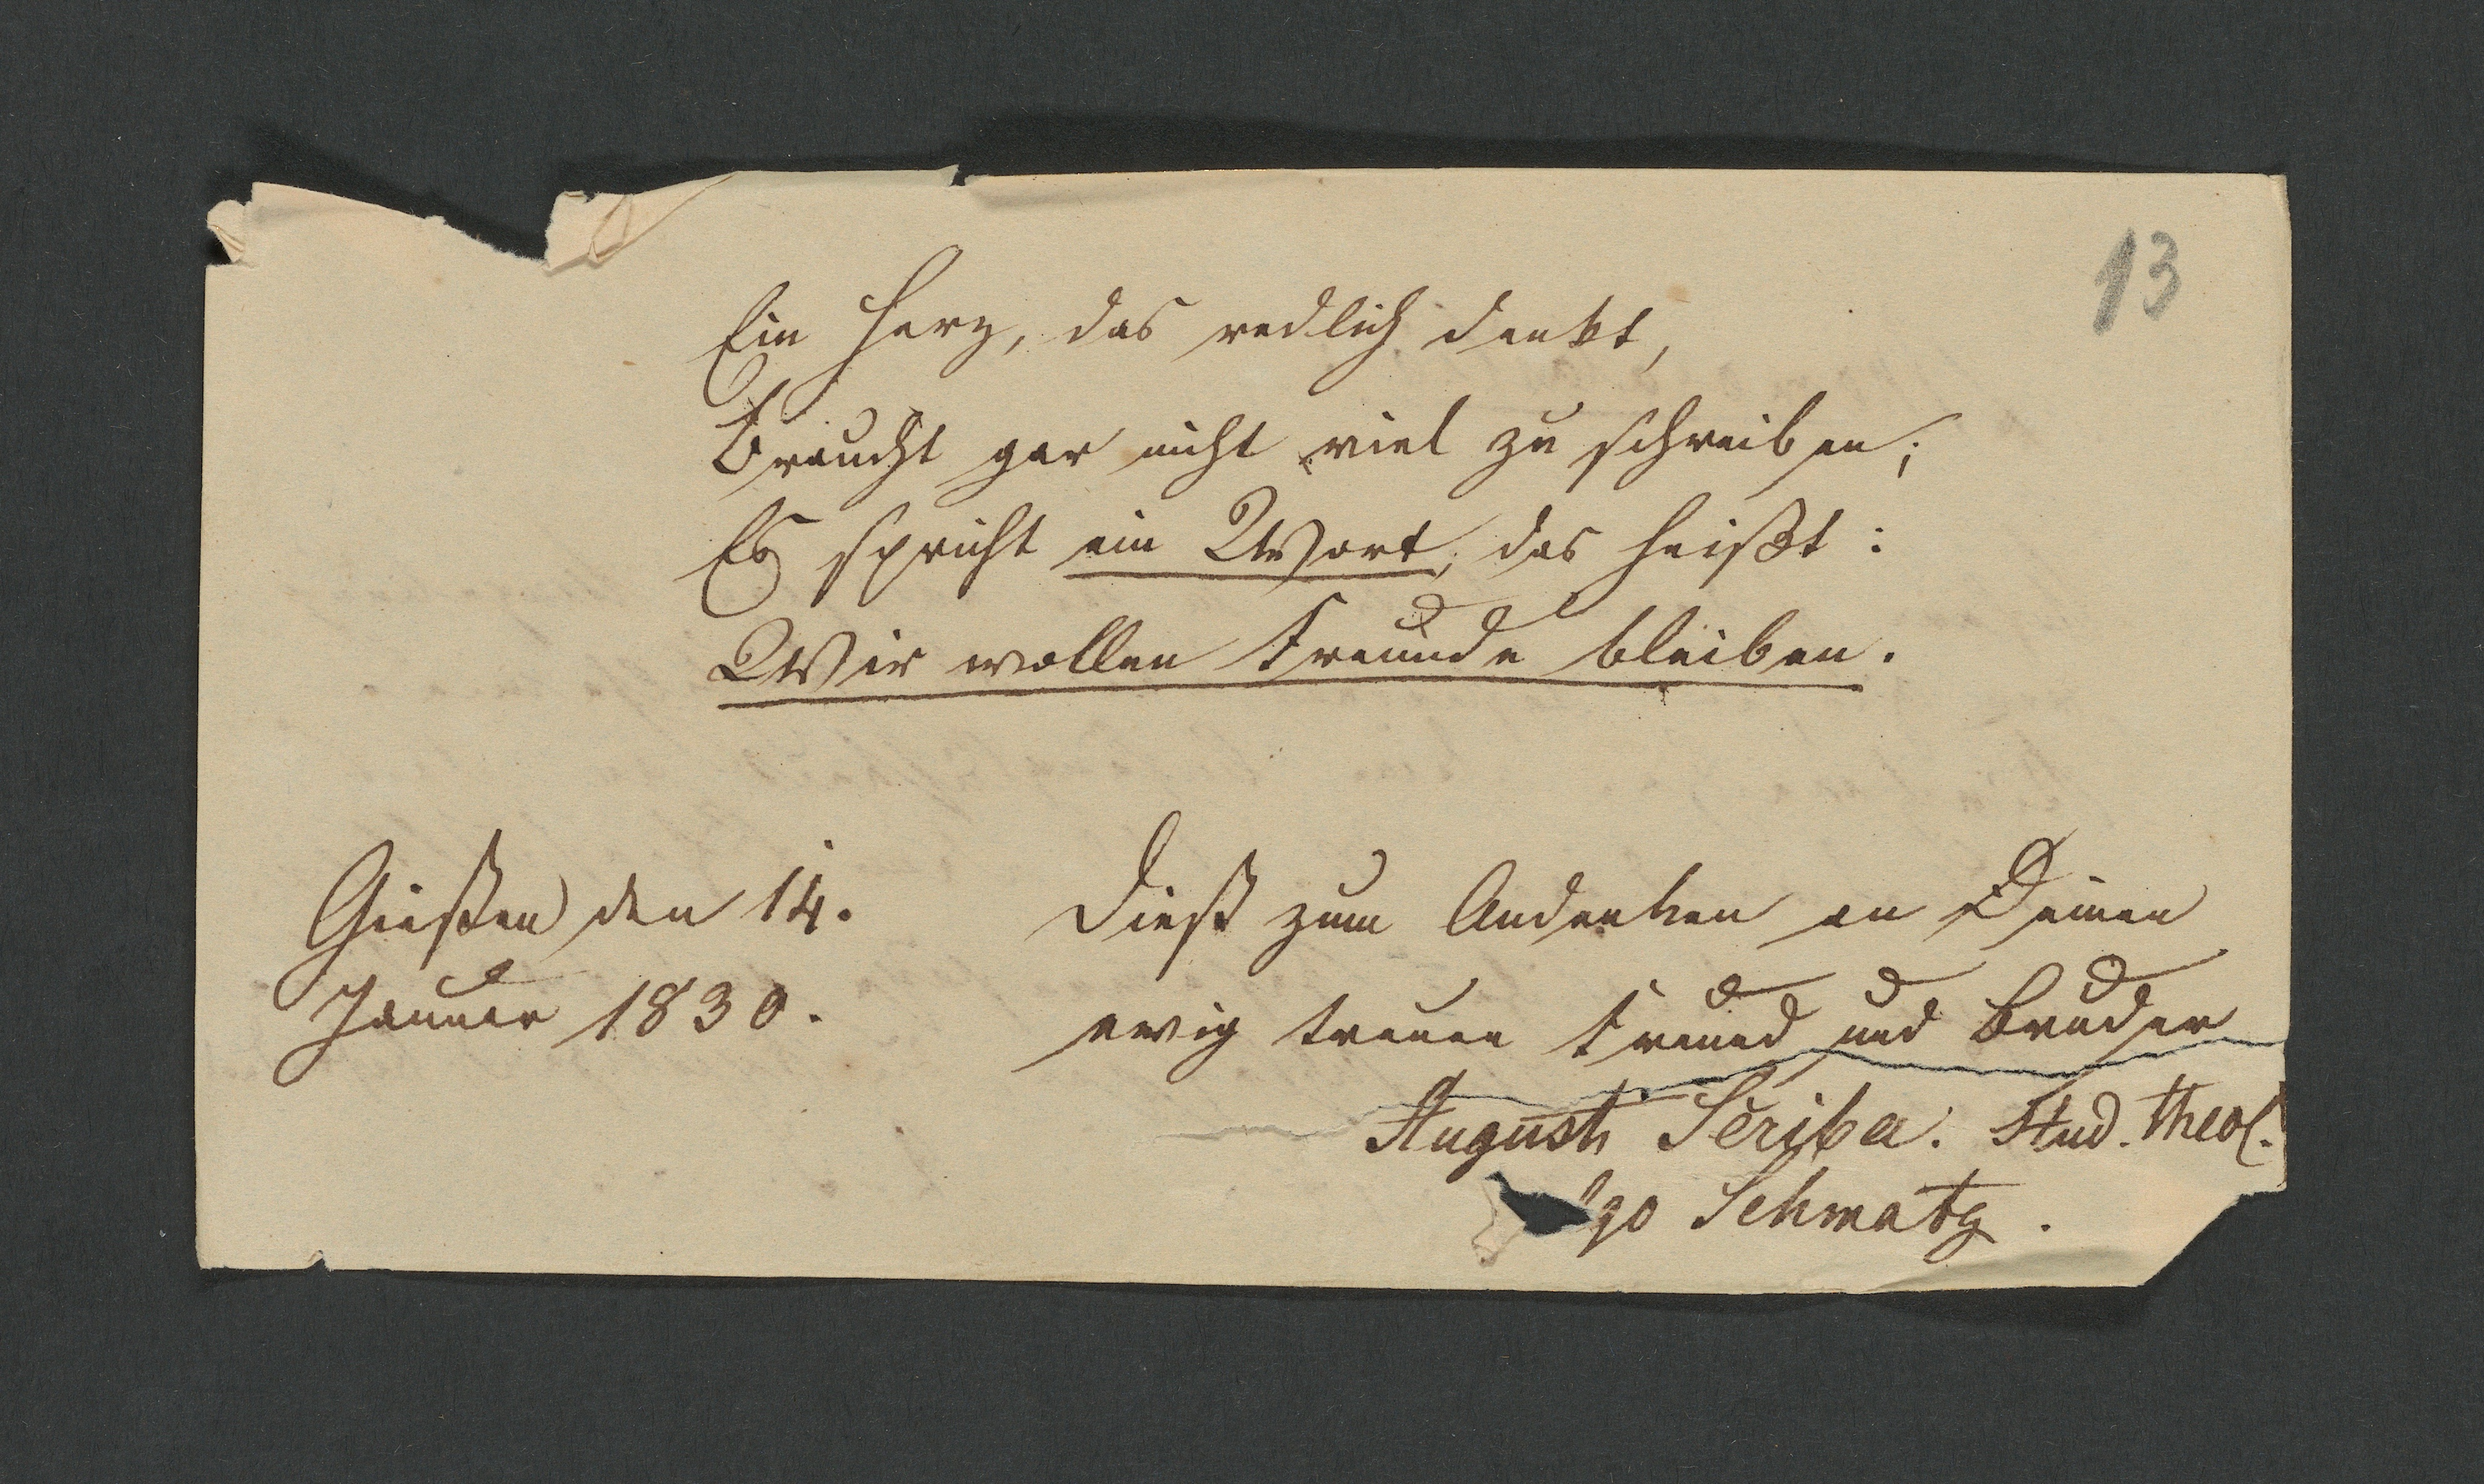 13
Ein Herz, das redlich denkt,
Braucht gar nicht viel zu schreiben;
Es spricht ein Wort, das heißt:
Wir wollen Freunde bleiben.
Gießen den 14.
Januar 1830.
Dieß zum Andenken an Deinen
ewig treuen Freund und Bruder
August Scriba. Stud. theol.
Schmatz.